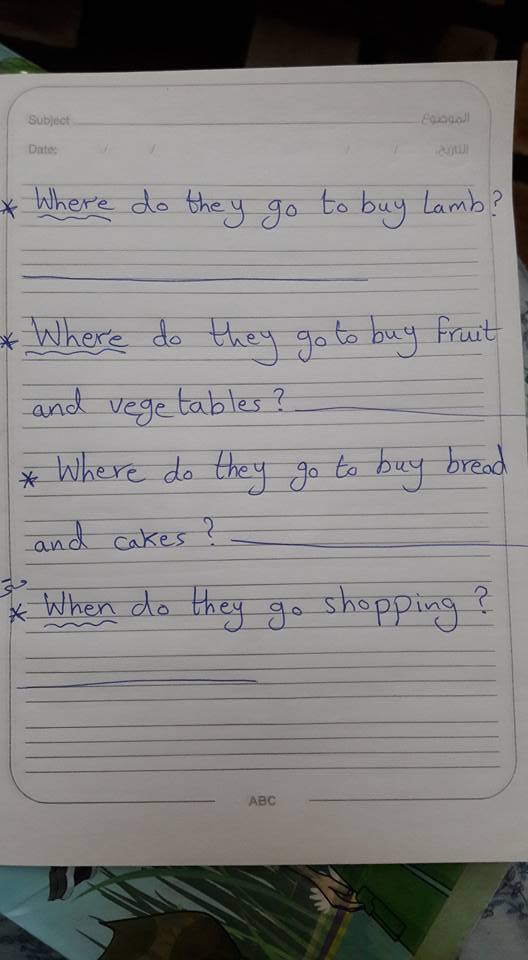 Subject الموضوع
Date: / / / / التاريخ
* Where do they go to buy Lamb?
* Where do they go to buy fruit
and vegetables?
* Where do they go to buy bread
and cakes?
* When do they go shopping?
ABC